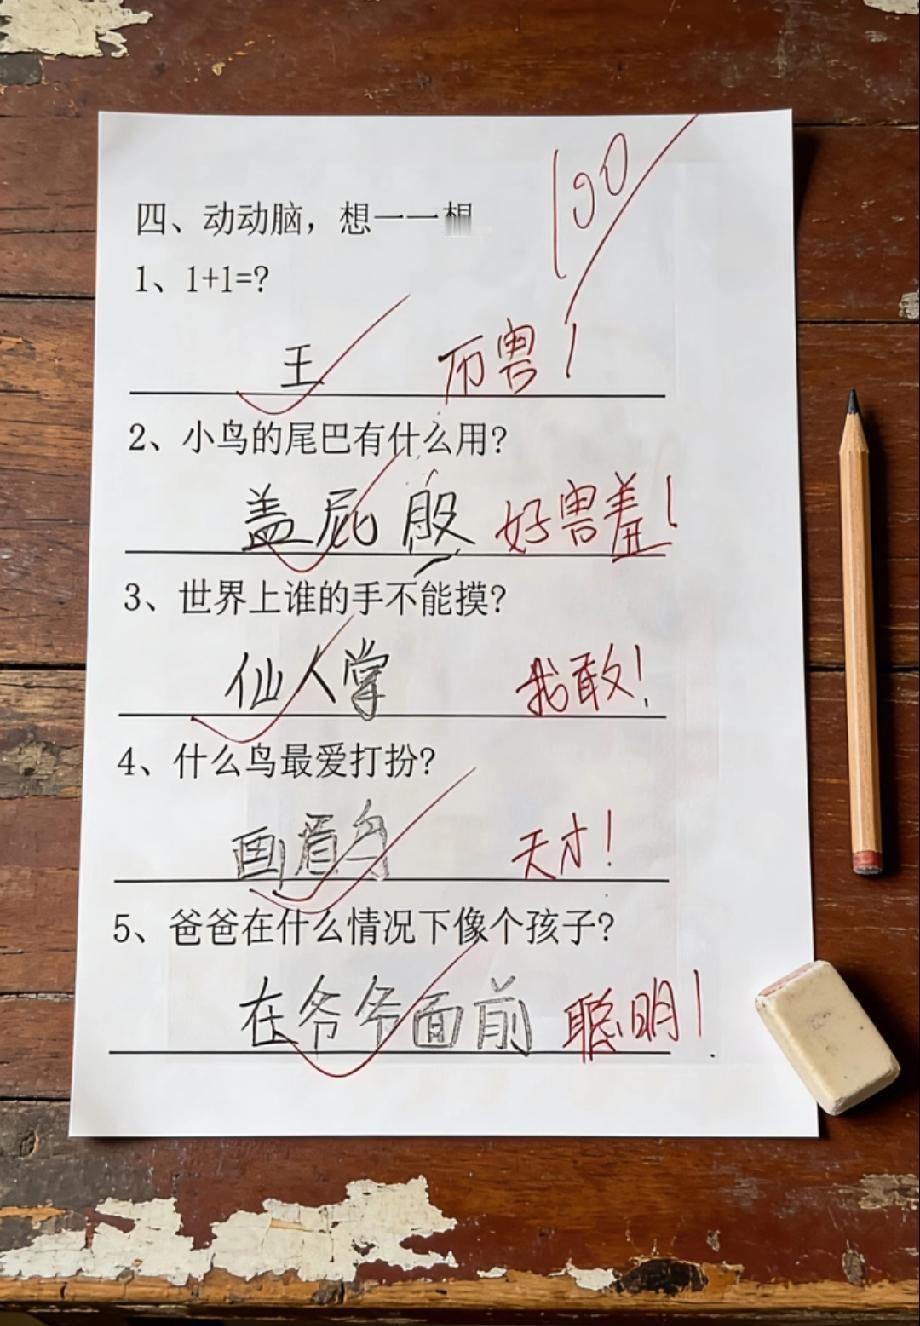 100
四、动动脑，想一一想
1、1+1=?
王 厉害！
2、小鸟的尾巴有什么用?
盖屁股 好害羞！
3、世界上谁的手不能摸?
仙人掌 我敢！
4、什么鸟最爱打扮?
画眉鸟 天才！
5、爸爸在什么情况下像个孩子?
在爷爷面前 聪明！